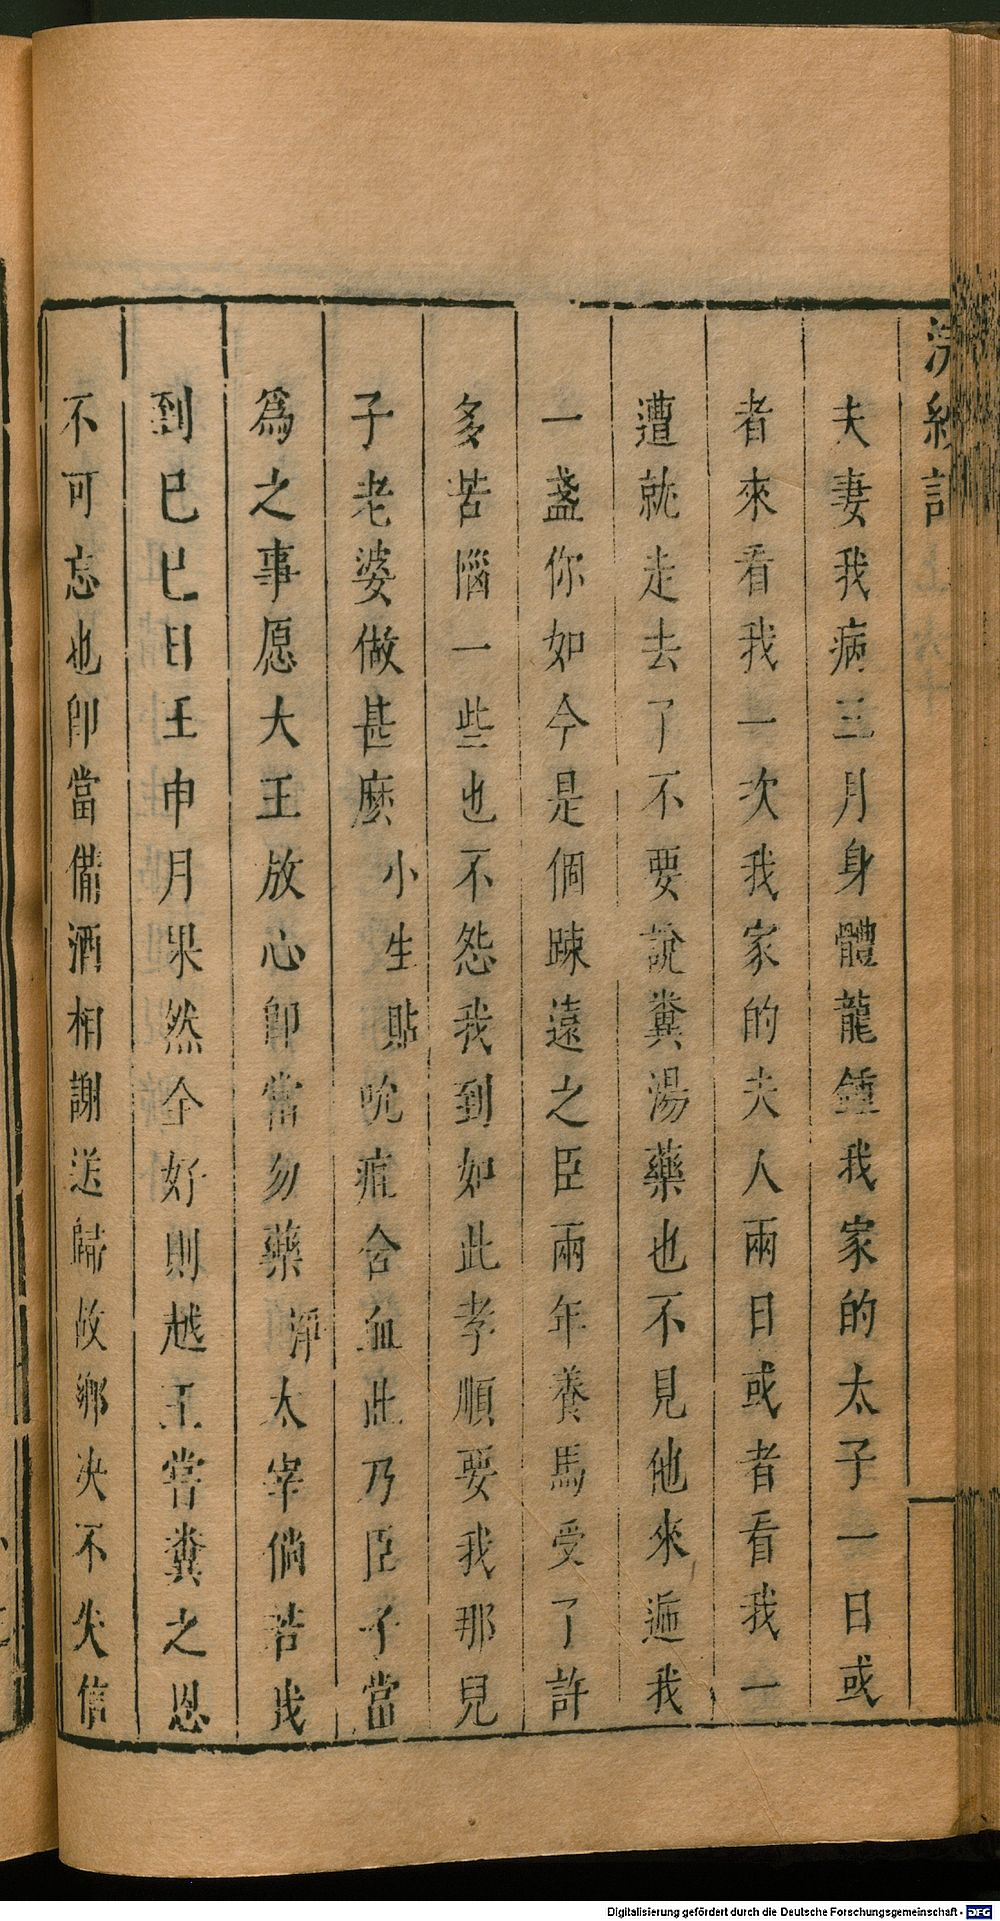 浣紗記
夫妻我病三月身體龍鍾我家的太子一日或
者來看我一次我家的夫人兩日或者看我一
遭就走去了不要說糞湯藥也不見他來遞我
一盞你如今是個踈遠之臣兩年養馬受了許
多苦惱一些也不怨我到如此孝順要我那兒
子老婆做甚麽小生貼吮疽含血此乃臣子當
爲之事愿大王放心卽當勿藥淨太宰倘若我
到巳巳日壬申月果然全好則越王嘗糞之恩
不可忘也卽當備酒相謝送歸故鄉决不失信
Digitalisierung gefördert durch die Deutsche Forschungsgemeinschaft - DFG